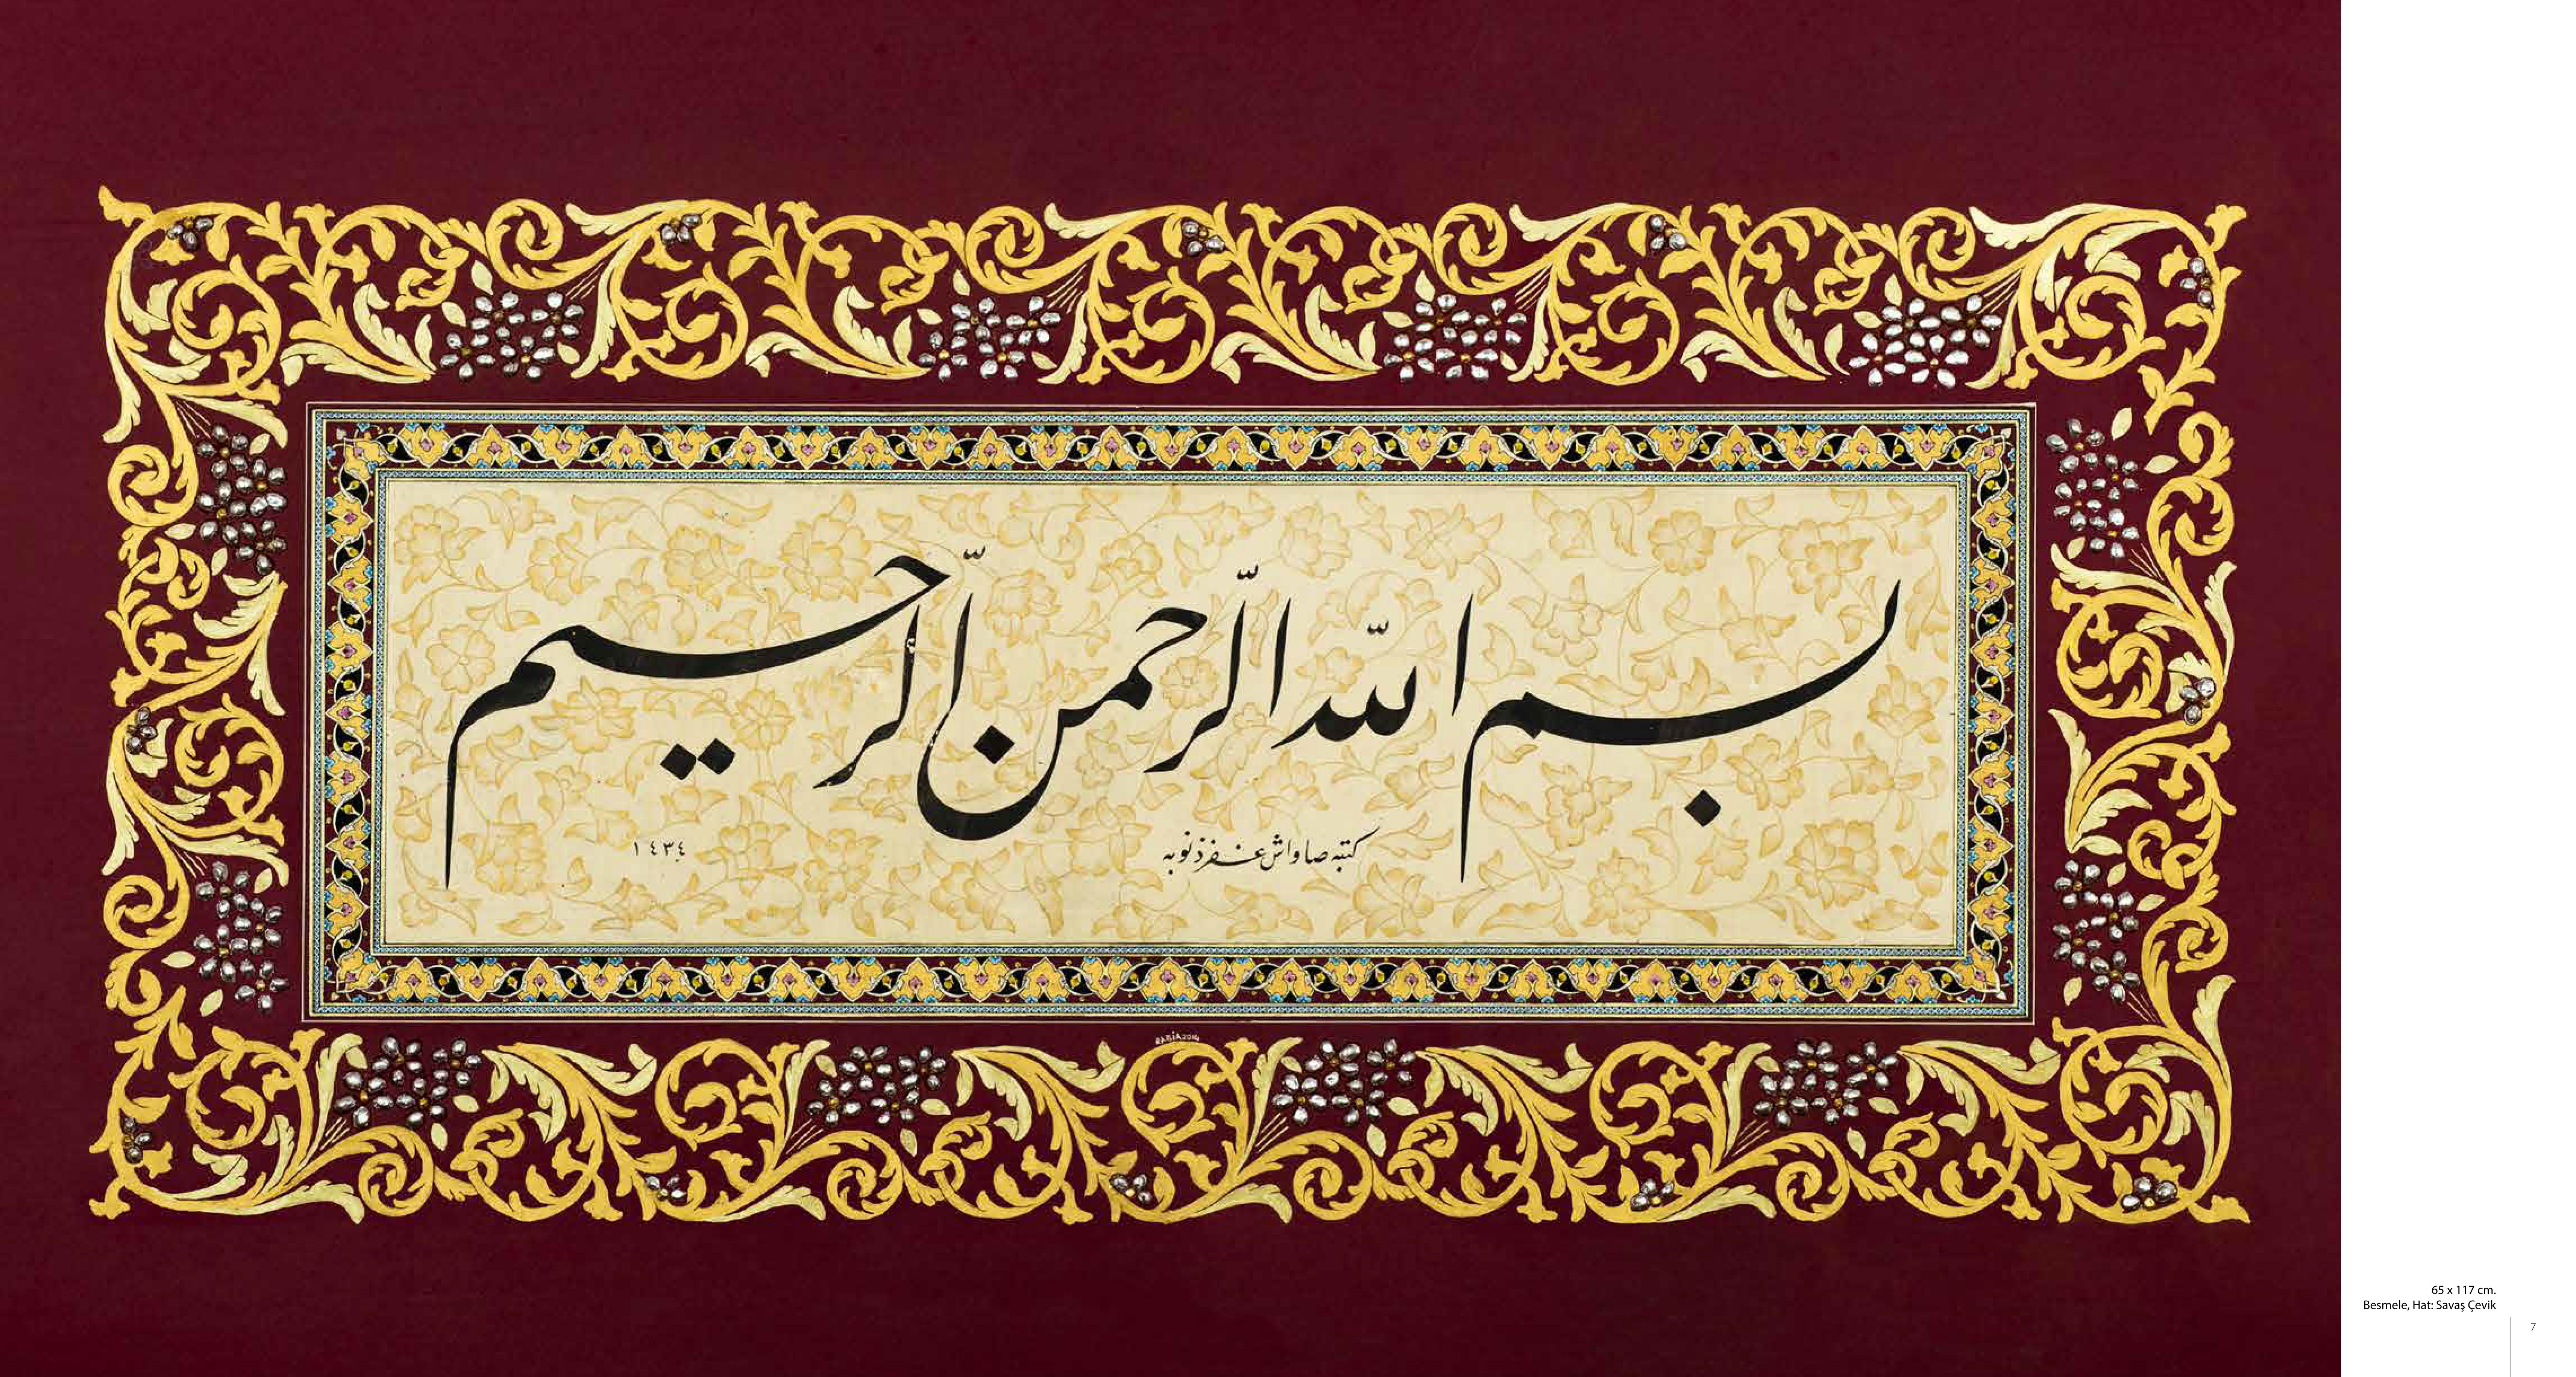 بسم الله الرّحمن الرّحيم
كتبه صاواش غفر ذنوبه
١٤٣٤
RABİA 2014
65 x 117 cm.
Besmele, Hat: Savaş Çevik
7